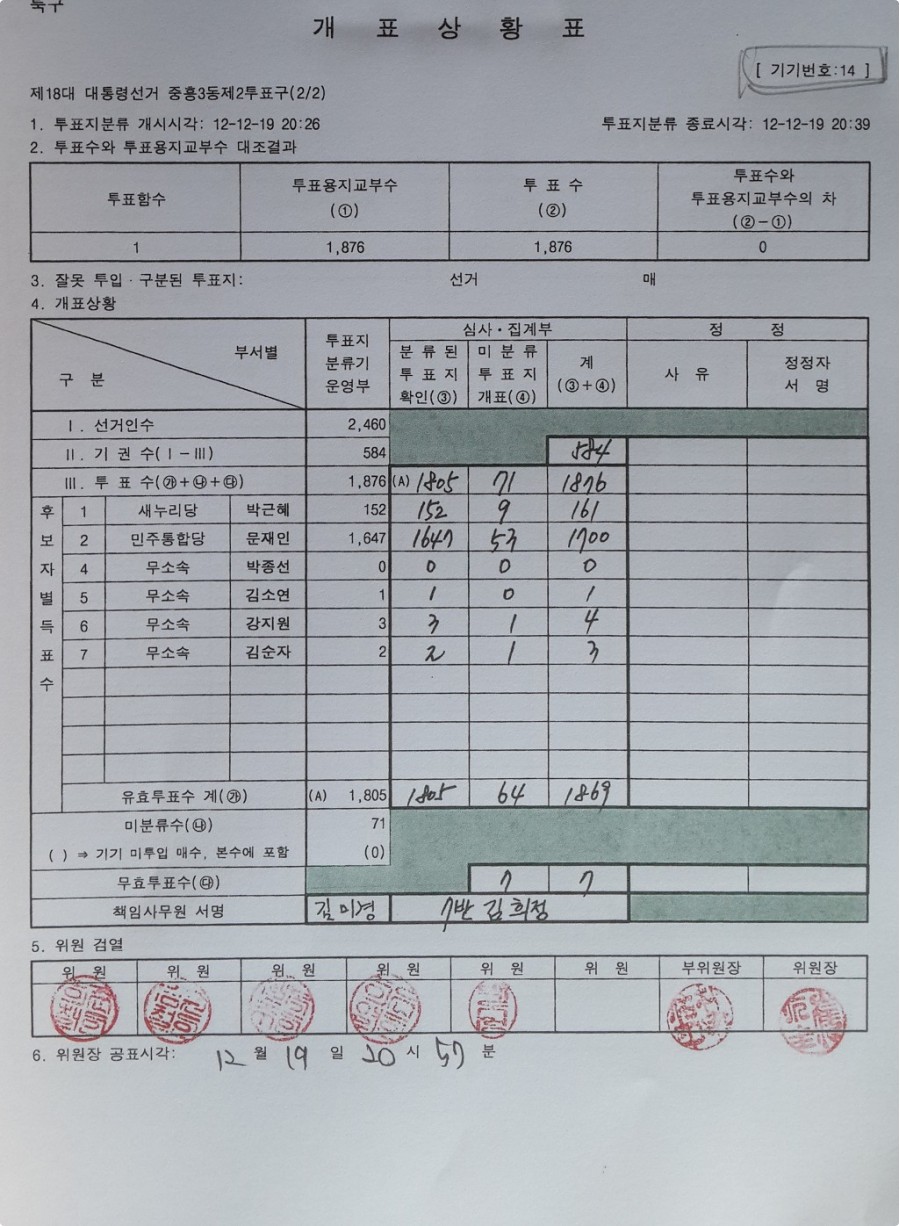 북구
개 표 상 황 표
[ 기기번호:14 ]
제18대 대통령선거 중흥3동제2투표구(2/2)
1. 투표지분류 개시시각: 12-12-19 20:26 투표지분류 종료시각: 12-12-19 20:39
2. 투표수와 투표용지교부수 대조결과
투표함수 투표용지교부수 (①) 투 표 수 (②) 투표수와 투표용지교부수의 차 (②-①)
1 1,876 1,876 0
3. 잘못 투입·구분된 투표지: 선거 매
4. 개표상황
구 분 부서별 투표지 분류기 운영부 심사·집계부 정 정
분 류 된 투 표 지 확인(③) 미 분 류 투 표 지 개표(④) 계 (③+④) 사 유 정정자 서 명
Ⅰ. 선거인수 2,460
Ⅱ. 기 권 수(Ⅰ-Ⅲ) 584 584
Ⅲ. 투 표 수(㉮+㉯+㉰) 1,876 (A) 1805 71 1876
후보자별득표수
1 새누리당 박근혜 152 152 9 161
2 민주통합당 문재인 1,647 1647 53 1700
4 무소속 박종선 0 0 0 0
5 무소속 김소연 1 1 0 1
6 무소속 강지원 3 3 1 4
7 무소속 김순자 2 2 1 3
유효투표수 계(㉮) (A) 1,805 1805 64 1869
미분류수(㉯) 71
( ) ⇒ 기기 미투입 매수, 본수에 포함 (0)
무효투표수(㉰) 7 7
책임사무원 서명 길미경 7반 김희정
5. 위원 검열
위 원 위 원 위 원 위 원 위 원 위 원 부위원장 위원장
6. 위원장 공표시각: 12 월 19 일 20 시 57 분